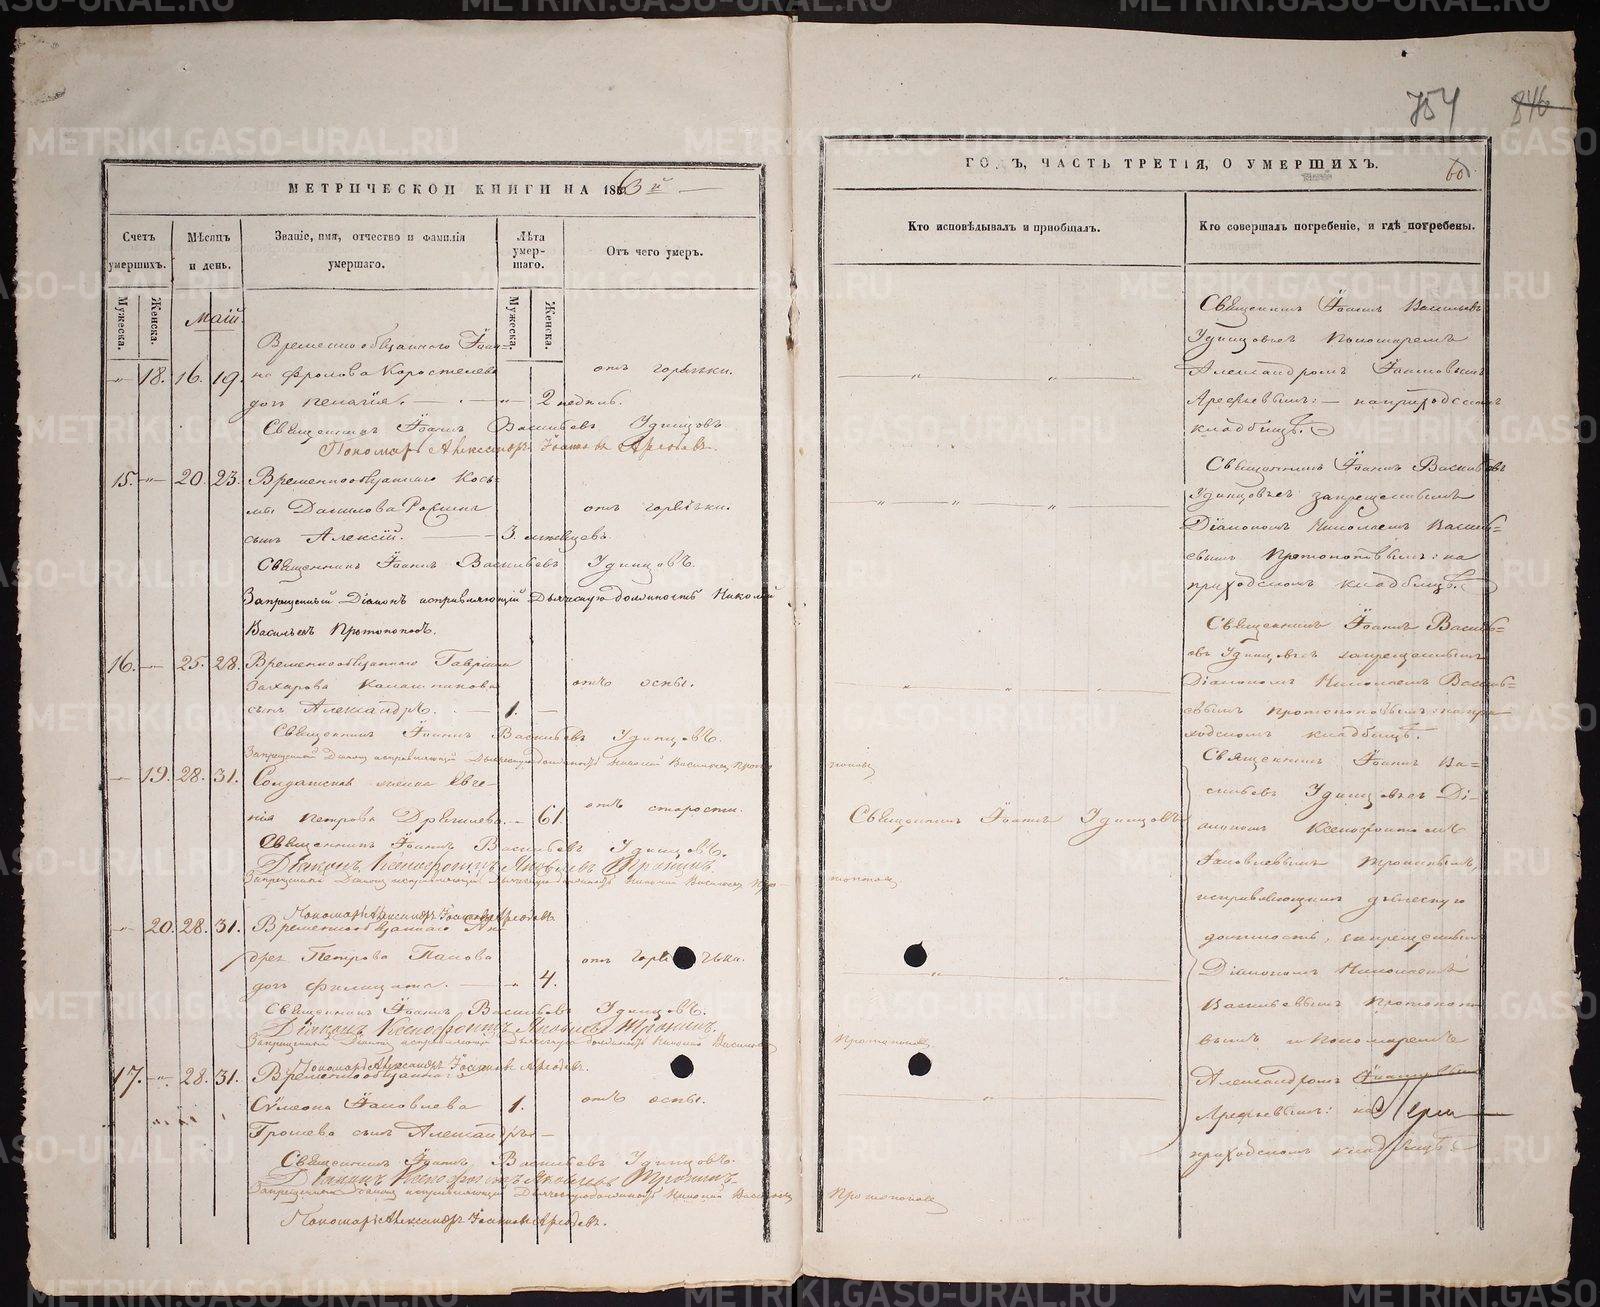 754 846
МЕТРИЧЕСКОЙ КНИГИ НА 1863й
Счетъ умершихъ.
Мѣсяцъ и день.
Званіе, имя, отчество и фамилія умершаго.
Лѣта умер-
шаго.
Отъ чего умеръ.
Мужеска.
Женска.
Мужеска.
Женска.
Маій.
Временнообязаннаго Іоан-
18. 16. 19. на Фролова Коростелева отъ горячки.
дочь Пелагія. 2 недѣль.
Священникъ Іоаннъ Васильевъ Удинцовъ.
Пономарь Александръ Іоанновъ Арефьевъ.
15. 20. 23. Временнообязаннаго Кось-
мы Данилова отъ горячки.
сынъ Алексій. 3. мѣсяцевъ.
Священникъ Іоаннъ Васильевъ Удинцовъ.
Запрещенный Діаконъ исправляющій Дьяческую должность Николай
Васильевъ Протопоповъ.
16. 25. 28. Временнообязаннаго Гавріила
Захарова Калашникова отъ оспы.
сынъ Александръ. 1.
Священникъ Іоаннъ Васильевъ Удинцовъ.
Запрещенный Діаконъ исправляющій Дьяческую должность Николай Васильевъ Прото
поповъ
19. 28. 31. Солдатская жонка Евге-
нія Петрова 61. отъ старости.
Священникъ Іоаннъ Васильевъ Удинцовъ.
Діаконъ Ксенофонтъ Яковлевъ Тронинъ.
Запрещенный Діаконъ исправляющій Дьяческую должность Николай Васильевъ Про-
топоповъ
Пономарь Александръ Іоанновъ Арефьевъ
20. 28. 31. Временнообязаннаго Ан-
дрея Петрова Панова отъ горячки.
дочь Филицата. 4.
Священникъ Іоаннъ Васильевъ Удинцовъ.
Діаконъ Ксенофонтъ Яковлевъ Тронинъ.
Запрещенный Діаконъ исправляющій Дьяческую должность Николай Васильевъ
Протопоповъ
Пономарь Александръ Іоанновъ Арефьевъ.
17. 28. 31. Временнообязаннаго
Сѵмеона Іаковлева 1. отъ оспы.
Грошева сынъ Александръ
Священникъ Іоаннъ Васильевъ Удинцовъ.
Діаконъ Ксенофонтъ Яковлевъ Тронинъ.
Запрещенный Діаконъ исправляющій Дьяческую должность Николай Васильевъ
Протопоповъ
Пономарь Александръ Іоанновъ Арефьевъ.
ГОДЪ, ЧАСТЬ ТРЕТІЯ, О УМЕРШИХЪ.
60
Кто исповѣдывалъ и пріобщалъ.
Кто совершалъ погребеніе, и гдѣ погребены.
Священникъ Іоаннъ Васильевъ
Удинцовъ съ Пономаремъ
Александромъ Іоанновымъ
Арефьевымъ: на приходскомъ
кладбищѣ.
Священникъ Іоаннъ Васильевъ
Удинцовъ съ запрещеннымъ
Діакономъ Николаемъ Василь=
евымъ Протопоповымъ: на
приходскомъ кладбищѣ.
Священникъ Іоаннъ Василь=
евъ Удинцовъ съ запрещеннымъ
Діакономъ Николаемъ Василь=
евымъ Протопоповымъ: на при
ходскомъ кладбищѣ.
Священникъ Іоаннъ Удинцовъ
Священникъ Іоаннъ Ва-
сильевъ Удинцовъ съ Ді-
акономъ Ксенофонтомъ
Іаковлевымъ Тронинымъ,
исправляющимъ дьяческую
должность, запрещеннымъ
Діакономъ Николаемъ
Васильевымъ Протопопо
вымъ и Пономаремъ
Александромъ Іоанновымъ
Арефьевымъ: на
приходскомъ кладбищѣ.